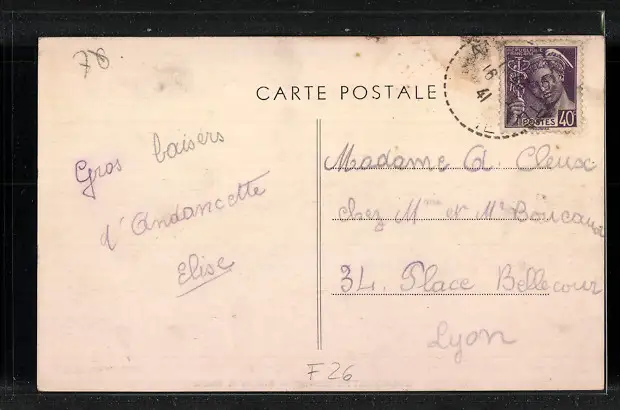 78
CARTE POSTALE
REPUBLIQUE FRANCAISE
POSTES 40
18
41
Gros baisers
d'Andancette
Elise
Madame A. Cleux
chez Mme et Mr Boucaud
34 Place Bellecour
Lyon
F26